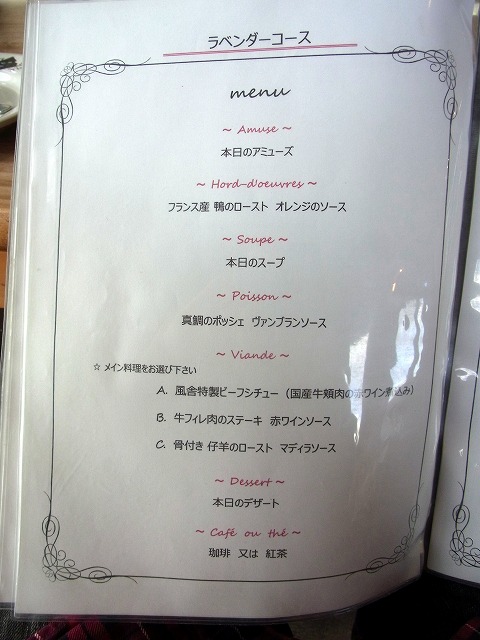 ラベンダーコース
menu
～ Amuse ～
本日のアミューズ
～ Hord-d'oeuvres ～
フランス産 鴨のロースト オレンジのソース
～ Soupe ～
本日のスープ
～ Poisson ～
真鯛のポッシェ ヴァンブランソース
～ Viande ～
☆ メイン料理をお選び下さい
A. 風舎特製ビーフシチュー（国産牛頬肉の赤ワイン煮込み）
B. 牛フィレ肉のステーキ 赤ワインソース
C. 骨付き 仔羊のロースト マディラソース
～ Dessert ～
本日のデザート
～ Café ou thé ～
珈琲 又は 紅茶